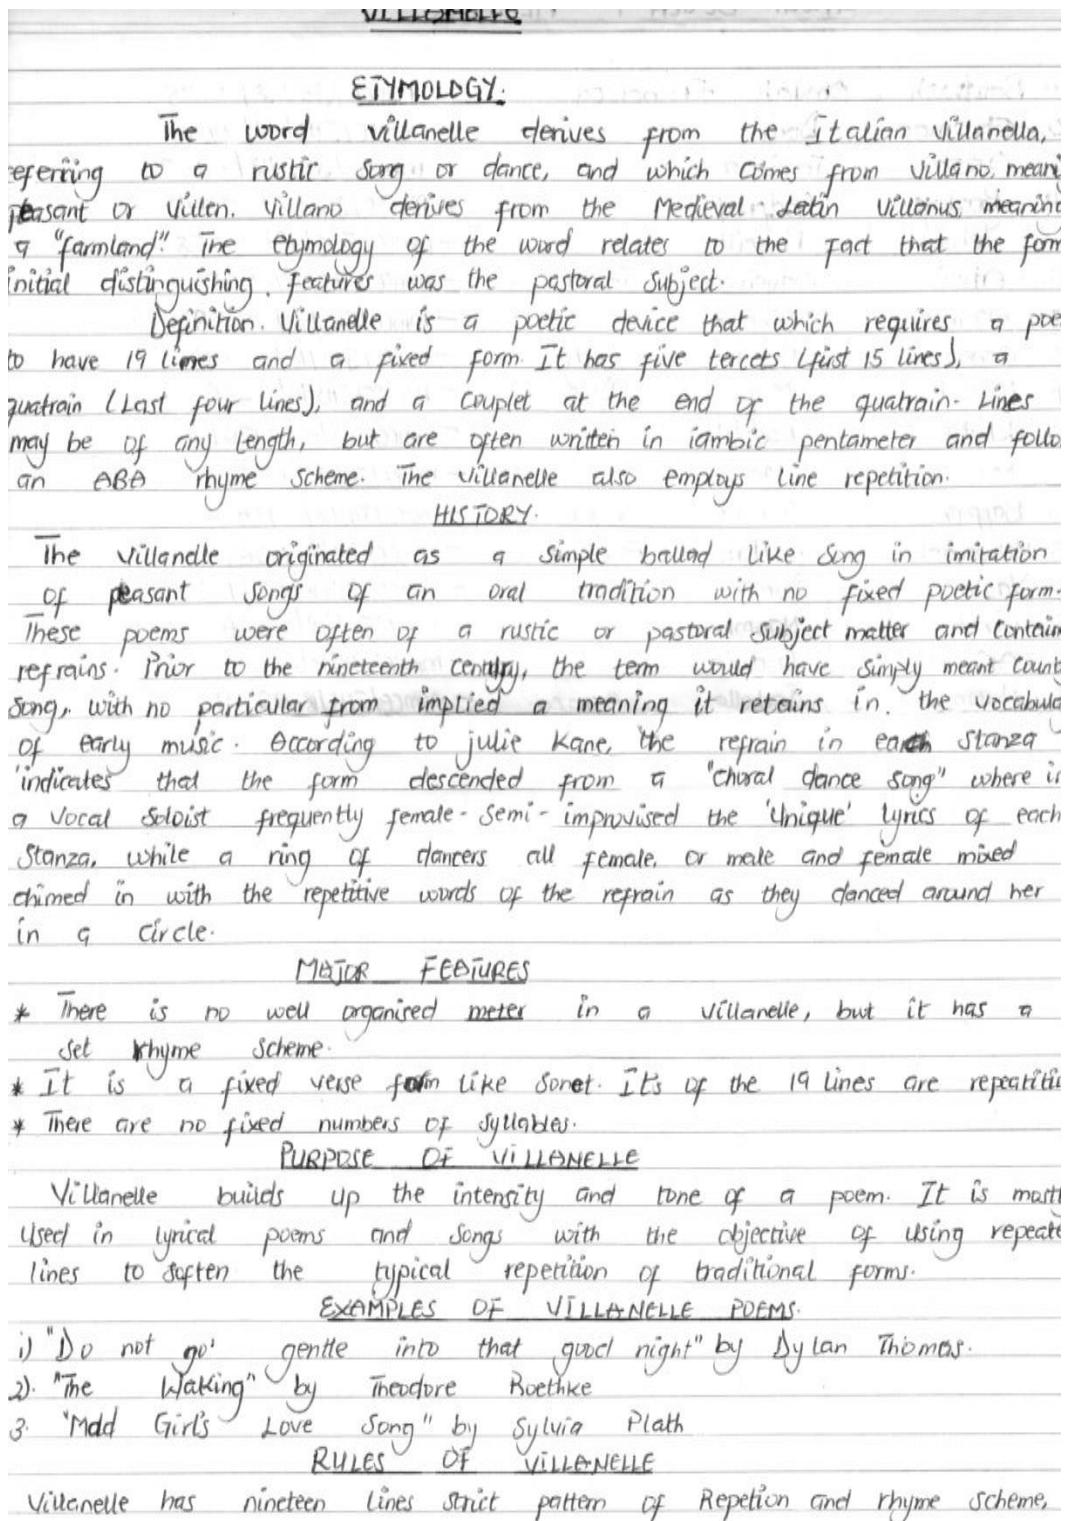 VILLANELLE
ETYMOLOGY.
The word villanelle derives from the Italian Villanella,
eferring to a rustic song or dance, and which comes from Villano, meani
peasant or villen. Villano derives from the Medieval Latin Villanus, meaning
a "farmland". The etymology of the word relates to the fact that the form
initial distinguishing. features was the pastoral subject.
Definition. Villanelle is a poetic device that which requires a poe
to have 19 lines and a fixed form. It has five tercets (first 15 lines), a
quatrain (Last four lines), and a couplet at the end of the quatrain. Lines
may be of any length, but are often written in iambic pentameter and follo
an ABA rhyme scheme. The villanelle also employs line repetition.
HISTORY.
The villanelle originated as a simple ballad like song in imitation
of peasant songs of an oral tradition with no fixed poetic form.
These poems were often of a rustic or pastoral subject matter and contain
refrains. Prior to the nineteenth century, the term would have simply meant count
song, with no particular from implied a meaning it retains in. the vocabula
of early music. According to julie Kane, the refrain in each stanza
'indicates that the form descended from a "choral dance song" where i
a vocal soloist frequently female - semi - improvised the 'Unique' lyrics of each
stanza, while a ring of dancers all female, or male and female mixed
chimed in with the repetitive words of the refrain as they danced around her
in a circle.
MAJOR FEATURES
* There is no well organised meter in a villanelle, but it has a
set rhyme scheme.
* It is a fixed verse form like sonet. It's of the 19 lines are repeatiti
* There are no fixed numbers of syllables.
PURPOSE OF VILLANELLE
Villanelle builds up the intensity and tone of a poem. It is mostl
used in lyrical poems and songs with the objective of using repeate
lines to soften the typical repetition of traditional forms.
EXAMPLES OF VILLANELLE POEMS.
i) "Do not go' gentle into that good night" by Dylan Thomas.
2). "The Waking" by Theodore Roethke
3. "Mad Girl's Love Song" by Sylvia Plath
RULES OF VILLANELLE
Villanelle has nineteen lines strict pattern of Repetion and rhyme scheme,